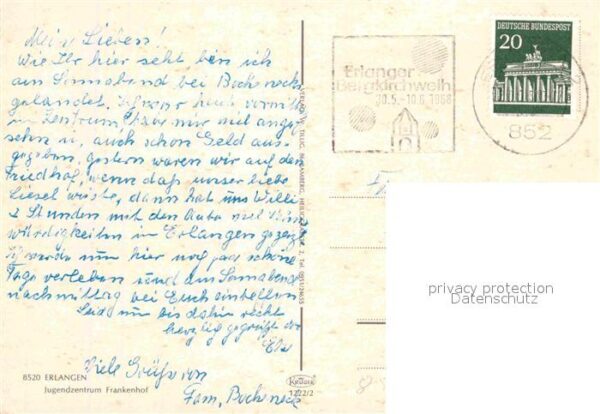 Meine Lieben!
Wie Ihr hier seht, bin ich
am Sonnabend bei Bocksneck
gelandet. Ich war heute vormitt.
im Zentrum, habe mir viel ange-
sehen u. auch schon Geld aus-
gegeben, gestern waren wir auf dem
Friedhof, wenn daß unser liebe
Liesel wüste, dann hat uns Willi
2 Stunden mit den Auto viel
würdigkeiten in Erlangen gezeigt
Ich werde nun hier noch paar schöne
Tage verleben und am Sonnabend
nachmittag bei Euch eintreffen
Seid nun bis dahin recht
herzlich gegrüßt von
Viele Grüße von
Fam. Bocksneck
8520 ERLANGEN
Jugendzentrum Frankenhof
KRÜGER
1222/2
Erlanger
Bergkirchweih
30.5.-10.6.1968
DEUTSCHE BUNDESPOST
20
852
privacy protection
Datenschutz